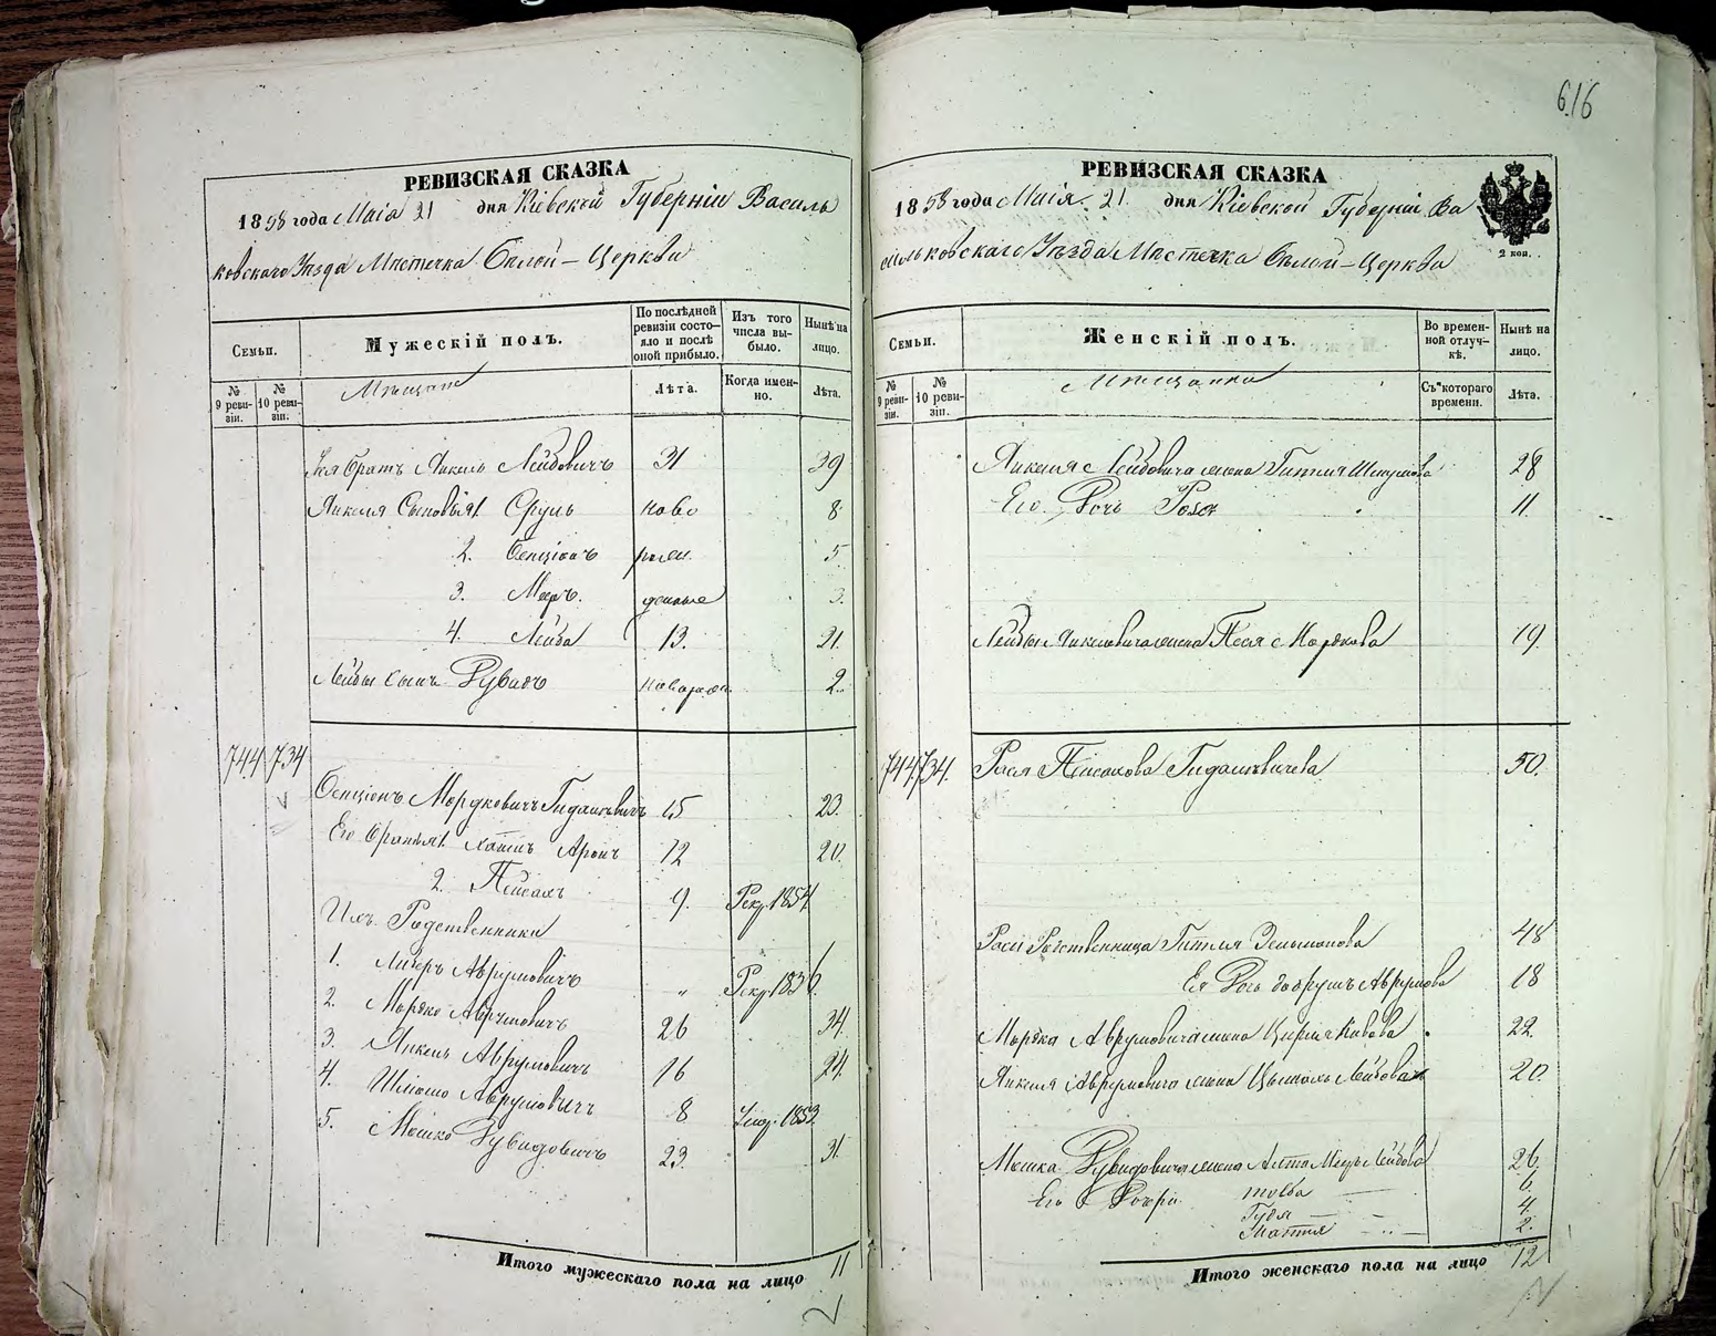 616
РЕВИЗСКАЯ СКАЗКА
1858 года Маія 21 дня Кіевской Губерніи Василь
ковскаго Уѣзда Мѣстечка Бѣлой-Церкви
Семьи.
Мужескій полъ.
По послѣдней ревизіи состо-яло и послѣ оной прибыло.
Изъ того числа вы-было.
Нынѣ на лицо.
№ 9 реви-зіи.
№ 10 реви-зіи.
Мѣщане
Лѣта.
Когда имен-но.
Лѣта.
братъ Янкель Лейбовичъ 31 39
Янкеля Сыновья 1. Сруль ново 8
2. Бенціонъ рож 5
3. Мееръ денные 3.
4. Лейба 13. 21.
Лейбы Сынъ Рувинъ новорож. 2.
744 734
Бенціонъ Мордковичъ Гидалевичъ 15 23.
Его братья 1. Хаимъ Аронъ 12 20.
2. Пейсахъ 9. Рекр. 1854
Ихъ Родственники
1. Лейзеръ Аврумовичъ " Рекр. 1836.
2. Мордко Аврумовичъ 26 34.
3. Янкель Аврумовичъ 16 24.
4. Шлиомо Аврумовичъ 8 Умер. 1853.
5. Мошко Рувидовичъ 23. 31.
Итого мужескаго пола на лицо 11
РЕВИЗСКАЯ СКАЗКА
1858 года Маія 21. дня Кіевской Губерніи Ва
сильковскаго Уѣзда Мѣстечка Бѣлой-Церкви
2 коп.
Семьи.
Женскій полъ.
Во времен-ной отлуч-кѣ.
Нынѣ на лицо.
№ 9 реви-зіи.
№ 10 реви-зіи.
Мѣщанки
Съ котораго времени.
Лѣта.
Янкеля Лейбовича жена Гитля Шмулова 28
Его Дочь Роза 11.
Лейбы Янкелевича жена Песя Мордкова 19.
744 734. Рася Пейсахова Гидалевичева 50.
Раси Родственница Гитля Зельманова 48
Ея Дочь Добрушъ Аврумова 18
Мордка Аврумовича жена Цирля 22.
Янкеля Аврумовича жена Лейбова 20.
Мошка Рувидовича жена Алта Лейбова 26.
Его Дочери Толба 6.
Гудя 4.
2.
Итого женскаго пола на лицо 12